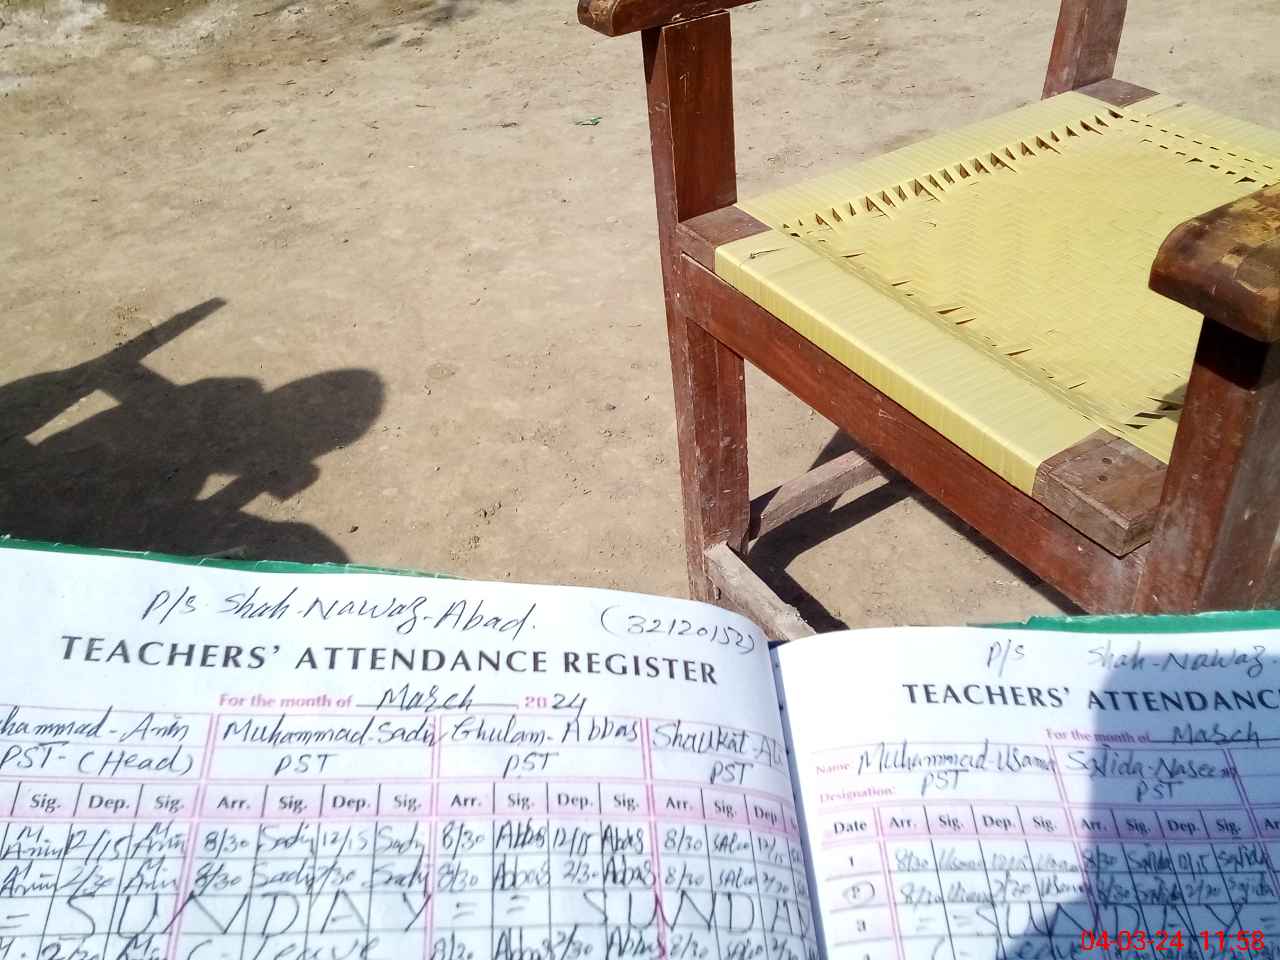 P/s. Shah-Nawaz-Abad. (32120152)
TEACHERS' ATTENDANCE REGISTER
For the month of March 2024
Muhammad-Sadiq Ghulam-Abbas Shaukat-Ali
PST-(Head) PST PST PST
Sig. Dep. Sig. Arr. Sig. Dep. Sig. Arr. Sig. Dep. Sig. Arr. Sig. Dep.
Amin 12/15 Amin 8/30 Sadiq 12/15 Sadiq 8/30 Abbas 12/15 Abbas 8/30
Amin 2/30 Amin 8/30 Sadiq 2/30 Sadiq 8/30 Abbas 2/30 Abbas 8/30
= SUNDAY = = SUNDAY
2/30 C-Leave 8/30 Abbas 2/30 Abbas 8/30
P/s Shah-Nawaz-
TEACHERS' ATTENDANC
For the month of March
Name Muhammad-Usama Sajida-Naseem
Designation: PST PST
Date Arr. Sig. Dep. Sig. Arr. Sig. Dep. Sig.
1 8/30 Usama 12/15 Usama 8/30 Sajida 12/15 Sajida
2 8/30 Usama 2/30 Usama 8/30 Sajida 2/30 Sajida
3 = SUNDAY =
04-03-24 11:58